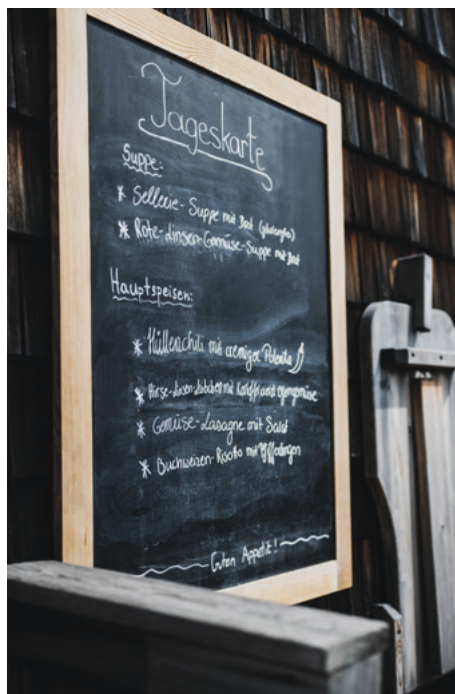 Tageskarte
Suppe:
* Sellerie-Suppe mit Brot (glutenfrei)
* Rote-Linsen-Gemüse-Suppe mit Brot
Hauptspeisen:
* mit cremiger Polenta
* Hirse-Linsen-Laibchen mit und Ofengemüse
* Gemüse-Lasagne mit Salat
* Buchweizen-Risotto mit
Guten Appetit!